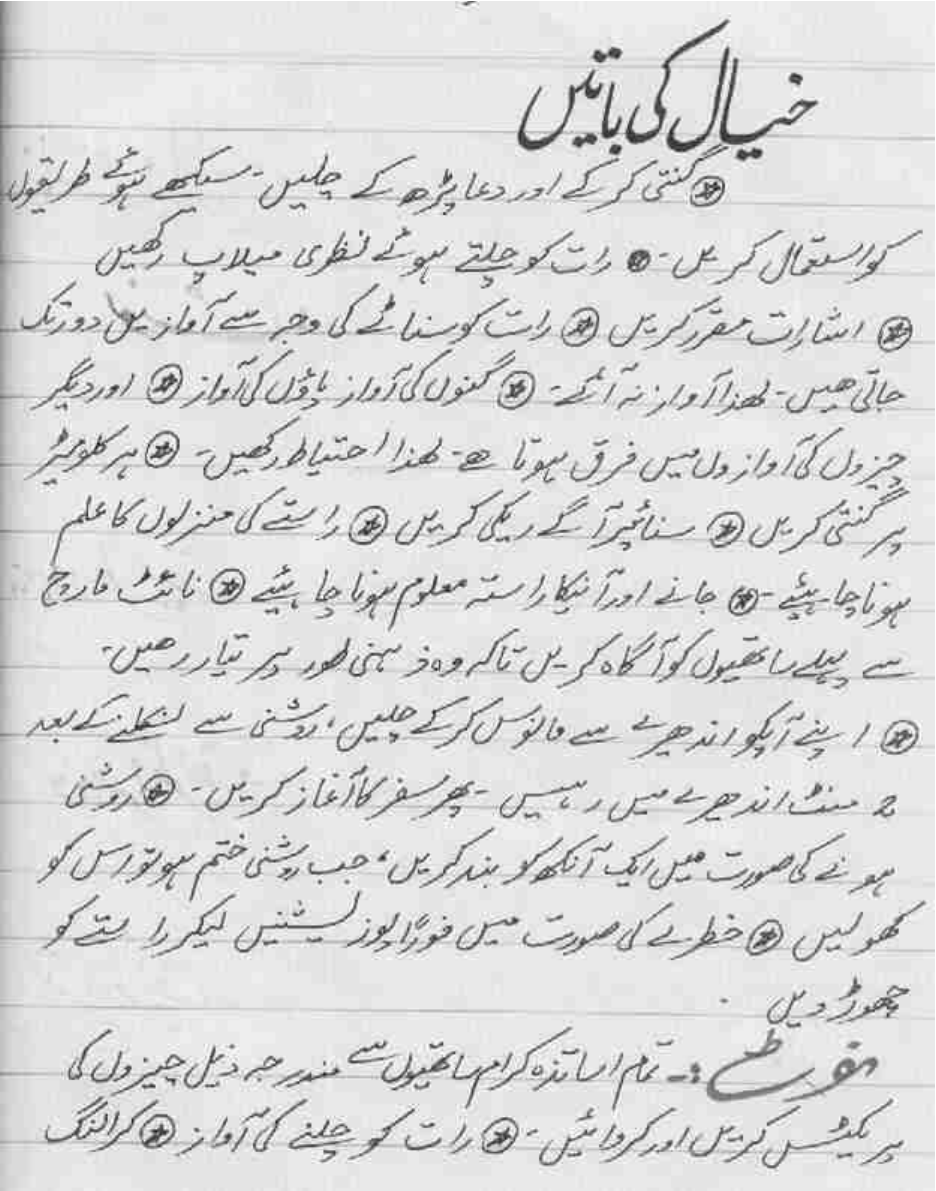 خیال کی باتیں
⊛ گنتی کر کے اور دعا پڑھ کے چلیں ۔ سیکھے ہوئے طریقوں
کو استعمال کریں ۔ ⊛ رات کو چلتے ہوئے نظری میلاپ رکھیں
⊛ اشارات مقرر کریں ⊛ رات کو سناٹے کی وجہ سے آوازیں دور تک
جاتی ھیں ۔ لھذا آواز نہ آئے ۔ ⊛ گنوں کی آواز پاؤں کی آواز ⊛ اور دیگر
چیزوں کی آوازوں میں فرق ہوتا ھے ۔ لھذا احتیاط رکھیں ۔ ⊛ ہر کلومیٹر
پر گنتی کریں ⊛ سنائپر آگے ریکی کریں ⊛ راستے کی منزلوں کا علم
ہونا چاہیئے ۔ ⊛ جانے اور آنیکا راستہ معلوم ہونا چاہیئے ⊛ نائٹ مارچ
سے پہلے ساتھیوں کو آگاہ کریں تاکہ وہ ذہنی طور پر تیار رھیں ۔
⊛ اپنے آپکو اندھیرے سے مانوس کر کے چلیں ، روشنی سے نکلنے کے بعد
منٹ اندھیرے میں رہیں ۔ پھر سفر کا آغاز کریں ۔ ⊛ روشنی
ہونے کی صورت میں ایک آنکھ کو بند کریں ، جب روشنی ختم ہو تو اس کو
کھولیں ⊛ خطرے کی صورت میں فوراً پوزیشنیں لیکر راستے کو
چھوڑ دیں .
نوٹ :۔ تمام اساتذہ کرام ساتھیوں سے مندرجہ ذیل چیزوں کی
پریکٹس کریں اور کروائیں ۔ ⊛ رات کو چلنے کی آواز ⊛ کرالنگ